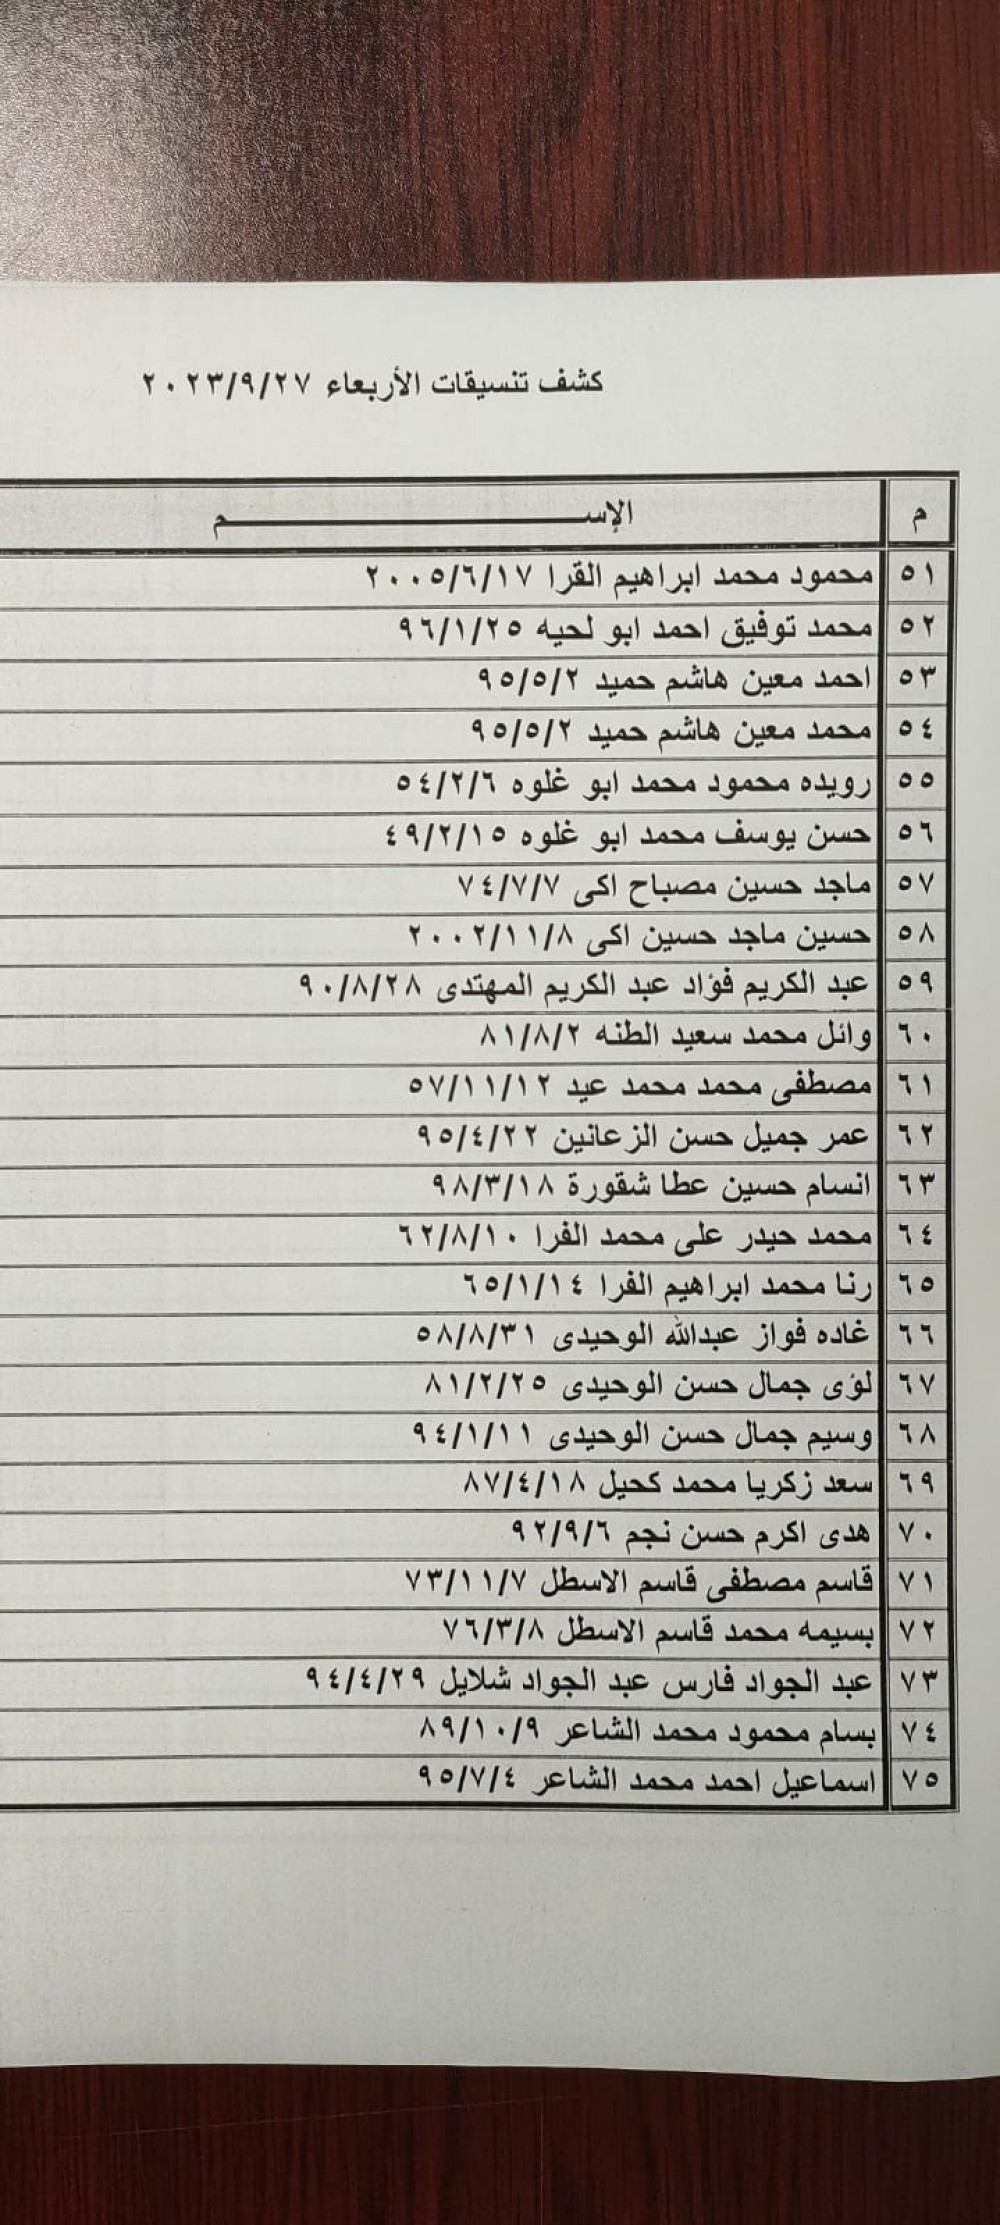 كشف تنسيقات الأربعاء ٢٠٢٣/٩/٢٧
م الإســـــــــــــــــــــــم
٥١ محمود محمد ابراهيم القرا ٢٠٠٥/٦/١٧
٥٢ محمد توفيق احمد ابو لحيه ٩٦/١/٢٥
٥٣ احمد معين هاشم حميد ٩٥/٥/٢
٥٤ محمد معين هاشم حميد ٩٥/٥/٢
٥٥ رويده محمود محمد ابو غلوه ٥٤/٢/٦
٥٦ حسن يوسف محمد ابو غلوه ٤٩/٢/١٥
٥٧ ماجد حسين مصباح اكى ٧٤/٧/٧
٥٨ حسين ماجد حسين اكى ٢٠٠٢/١١/٨
٥٩ عبد الكريم فؤاد عبد الكريم المهتدى ٩٠/٨/٢٨
٦٠ وائل محمد سعيد الطنه ٨١/٨/٢
٦١ مصطفى محمد محمد عيد ٥٧/١١/١٢
٦٢ عمر جميل حسن الزعانين ٩٥/٤/٢٢
٦٣ انسام حسين عطا شقورة ٩٨/٣/١٨
٦٤ محمد حيدر على محمد الفرا ٦٢/٨/١٠
٦٥ رنا محمد ابراهيم الفرا ٦٥/١/١٤
٦٦ غاده فواز عبدالله الوحيدى ٥٨/٨/٣١
٦٧ لؤى جمال حسن الوحيدى ٨١/٢/٢٥
٦٨ وسيم جمال حسن الوحيدى ٩٤/١/١١
٦٩ سعد زكريا محمد كحيل ٨٧/٤/١٨
٧٠ هدى اكرم حسن نجم ٩٢/٩/٦
٧١ قاسم مصطفى قاسم الاسطل ٧٣/١١/٧
٧٢ بسيمه محمد قاسم الاسطل ٧٦/٣/٨
٧٣ عبد الجواد فارس عبد الجواد شلايل ٩٤/٤/٢٩
٧٤ بسام محمود محمد الشاعر ٨٩/١٠/٩
٧٥ اسماعيل احمد محمد الشاعر ٩٥/٧/٤